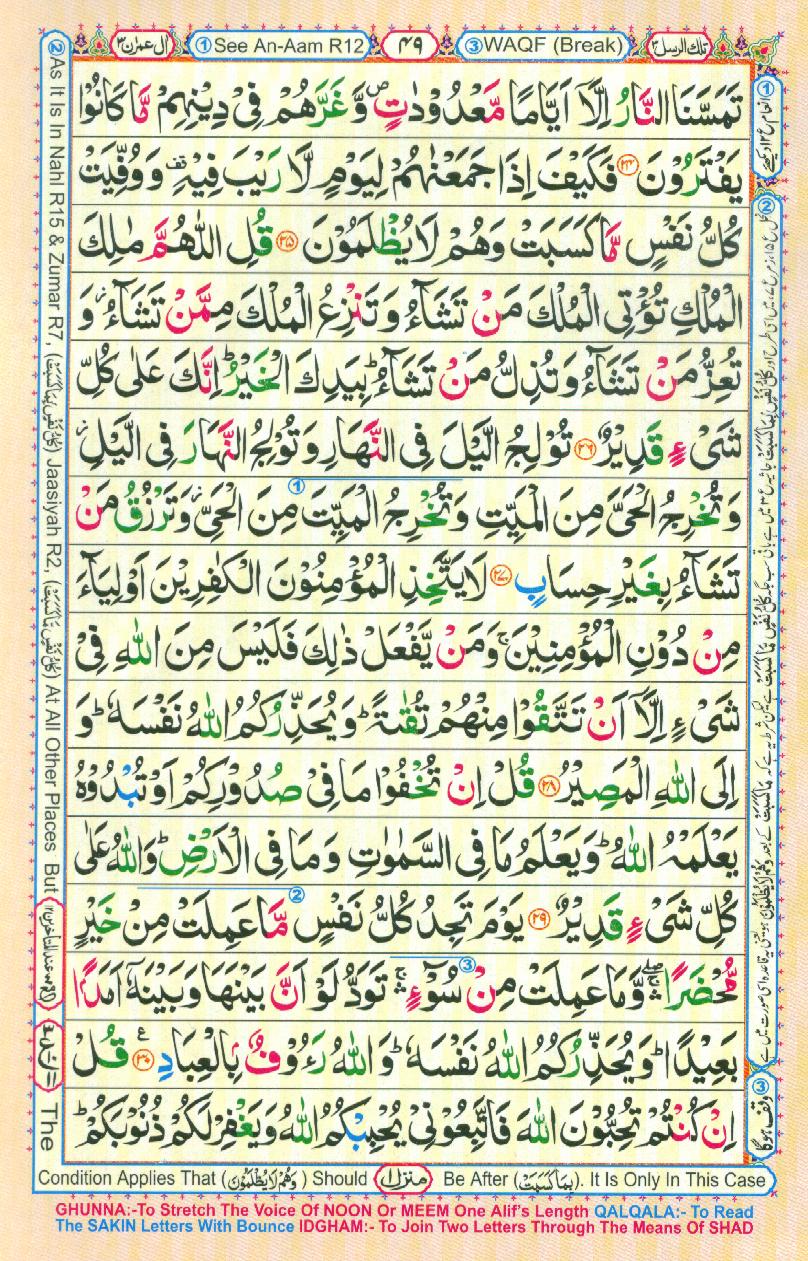 تلك الرسل ٣
③ WAQF (Break)
٤٩
① See An-Aam R12
ال عمرٰن ٣
تَمَسَّنَا النَّارُ اِلَّاۤ اَيَّامًا مَّعْدُوْدٰتٍ ۪ وَّغَرَّهُمْ فِيْ دِيْنِهِمْ مَّا كَانُوْا
يَفْتَرُوْنَ ۝۲۴ فَكَيْفَ اِذَا جَمَعْنٰهُمْ لِيَوْمٍ لَّا رَيْبَ فِيْهِ ۫ وَوُفِّيَتْ
كُلُّ نَفْسٍ مَّا كَسَبَتْ وَهُمْ لَا يُظْلَمُوْنَ ۝۲۵ قُلِ اللّٰهُمَّ مٰلِكَ
الْمُلْكِ تُؤْتِي الْمُلْكَ مَنْ تَشَآءُ وَتَنْزِعُ الْمُلْكَ مِمَّنْ تَشَآءُ ۫ وَ
تُعِزُّ مَنْ تَشَآءُ وَتُذِلُّ مَنْ تَشَآءُ ؕ بِيَدِكَ الْخَيْرُ ؕ اِنَّكَ عَلٰى كُلِّ
شَيْءٍ قَدِيْرٌ ۝۲۶ تُوْلِجُ الَّيْلَ فِي النَّهَارِ وَتُوْلِجُ النَّهَارَ فِي الَّيْلِ ۫
وَتُخْرِجُ الْحَيَّ مِنَ الْمَيِّتِ وَتُخْرِجُ الْمَيِّتَ مِنَ الْحَيِّ ۫ وَتَرْزُقُ مَنْ ①
تَشَآءُ بِغَيْرِ حِسَابٍ ۝۲۷ لَا يَتَّخِذِ الْمُؤْمِنُوْنَ الْكٰفِرِيْنَ اَوْلِيَآءَ
مِنْ دُوْنِ الْمُؤْمِنِيْنَ ۚ وَمَنْ يَّفْعَلْ ذٰلِكَ فَلَيْسَ مِنَ اللّٰهِ فِيْ
شَيْءٍ اِلَّاۤ اَنْ تَتَّقُوْا مِنْهُمْ تُقٰىةً ؕ وَيُحَذِّرُكُمُ اللّٰهُ نَفْسَهٗ ؕ وَ
اِلَى اللّٰهِ الْمَصِيْرُ ۝۲۸ قُلْ اِنْ تُخْفُوْا مَا فِيْ صُدُوْرِكُمْ اَوْ تُبْدُوْهُ
يَعْلَمْهُ اللّٰهُ ؕ وَيَعْلَمُ مَا فِي السَّمٰوٰتِ وَمَا فِي الْاَرْضِ ؕ وَاللّٰهُ عَلٰى
كُلِّ شَيْءٍ قَدِيْرٌ ۝۲۹ يَوْمَ تَجِدُ كُلُّ نَفْسٍ مَّا عَمِلَتْ مِنْ خَيْرٍ ②
مُّحْضَرًا ۖۛۚ وَّمَا عَمِلَتْ مِنْ سُوْٓءٍ ۛۚ تَوَدُّ لَوْ اَنَّ بَيْنَهَا وَبَيْنَهٗۤ اَمَدًۢا ③
بَعِيْدًا ؕ وَيُحَذِّرُكُمُ اللّٰهُ نَفْسَهٗ ؕ وَاللّٰهُ رَءُوْفٌۢ بِالْعِبَادِ ۝۳۰ ع قُلْ
اِنْ كُنْتُمْ تُحِبُّوْنَ اللّٰهَ فَاتَّبِعُوْنِيْ يُحْبِبْكُمُ اللّٰهُ وَيَغْفِرْ لَكُمْ ذُنُوْبَكُمْ ؕ
② As It Is In Nahl R15 & Zumar R7, (كُلُّ نَفْسٍ بِمَا كَسَبَتْ) Jaasiyah R2, (كُلُّ نَفْسٍ مَّا كَسَبَتْ) At All Other Places But The
③ وقف ہوگا
Condition Applies That (وَهُمْ لَا يُظْلَمُوْنَ) Should منزل ۱ Be After (بِمَا كَسَبَتْ). It Is Only In This Case
GHUNNA:-To Stretch The Voice Of NOON Or MEEM One Alif's Length QALQALA:- To Read
The SAKIN Letters With Bounce IDGHAM:- To Join Two Letters Through The Means Of SHAD